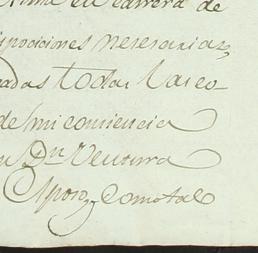 en carrera de
sposiciones nesesarias,
adas todas las co
de mi conciencia
Dn. Ventura
Aposo, como tal